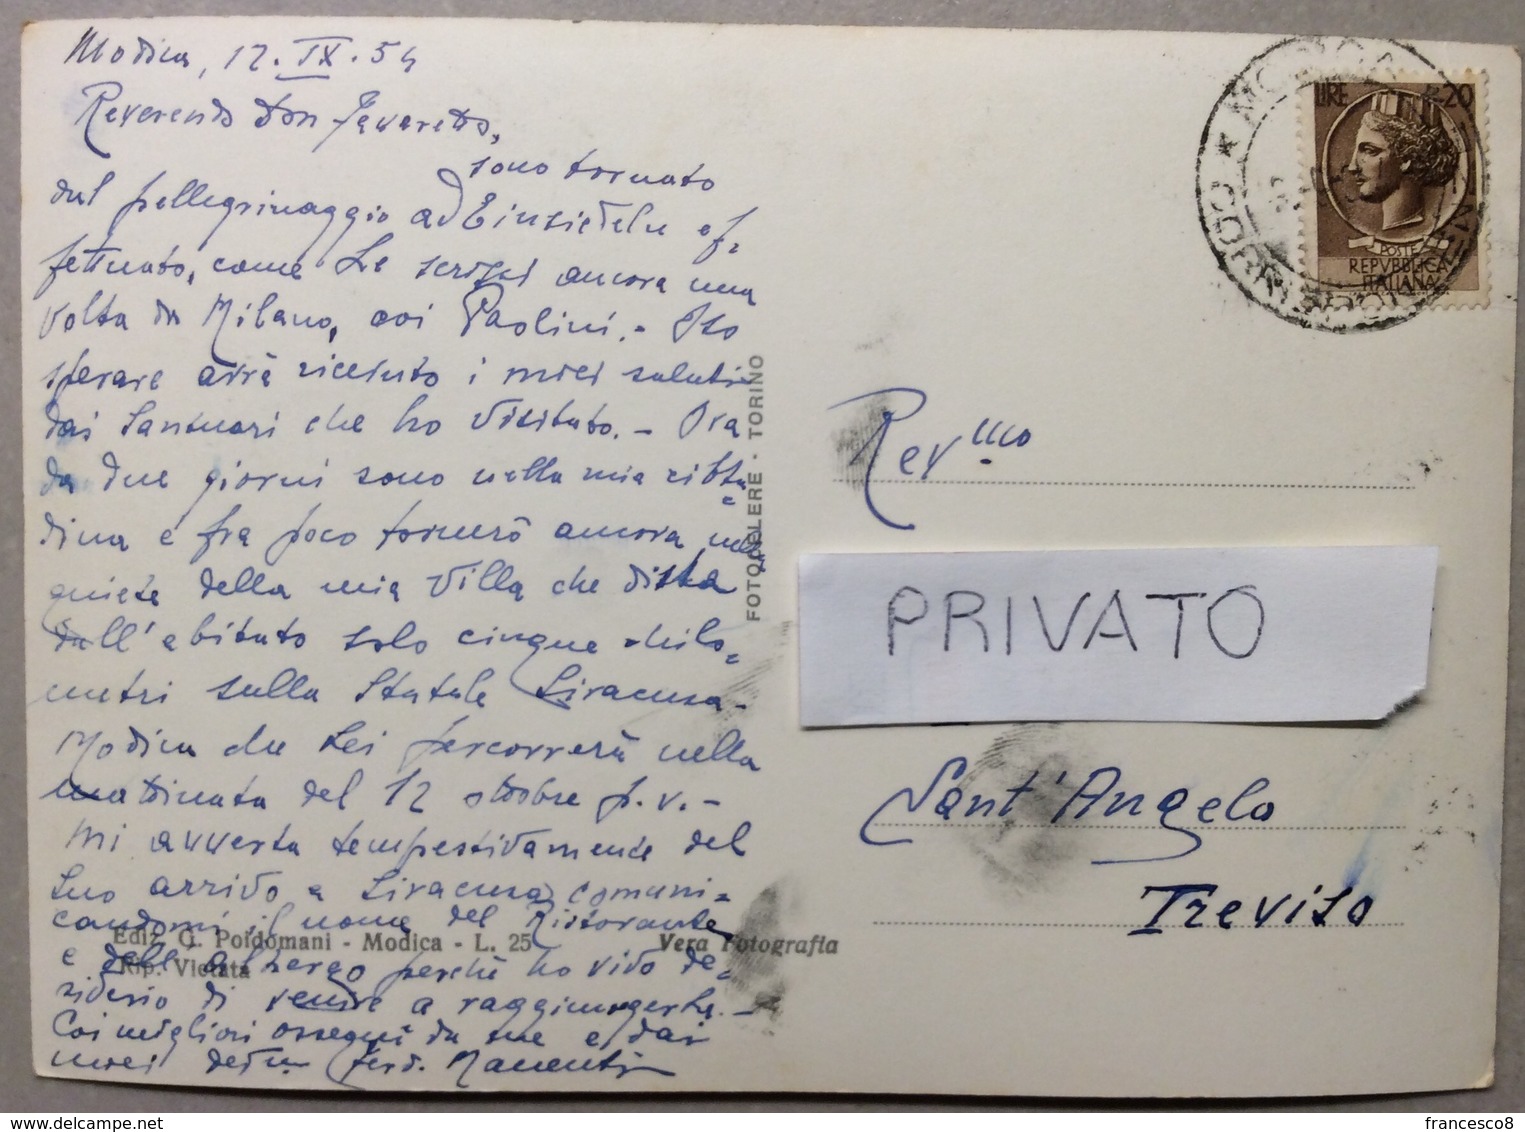 Modica, 12.IX.54
Reverendo Don Favaretto,
sono tornato
dal pellegrinaggio ad Einsiedeln ef=
fettuato, come Le scrissi ancora una
volta da Milano, coi Paolini. - Oso
sperare avrà ricevuto i miei saluti
dai Santuari che ho visitato. - Ora
da due giorni sono nella mia citta=
dina e fra poco tornerò ancora nella
quiete della mia villa che dista
dall'abitato solo cinque chilo=
metri sulla Statale Siracusa-
Modica che Lei percorrerà nella
mattinata del 12 ottobre p.v. -
Mi avverta tempestivamente del
Suo arrivo a Siracusa comuni=
candomi il nome del Ristorante
e dell'albergo perché ho vivo de=
siderio di venire a raggiungerLa. -
Coi migliori ossequi da me e dai
miei Ferd. Manenti
Ediz. G. Poidomani - Modica - L. 25
Vera Fotografia
Rip. Vietata
FOTOCELERE - TORINO
LIRE 20
POSTE
REPVBBLICA
ITALIANA
Rev.mo
PRIVATO
Sant'Angelo
Treviso
francesco8